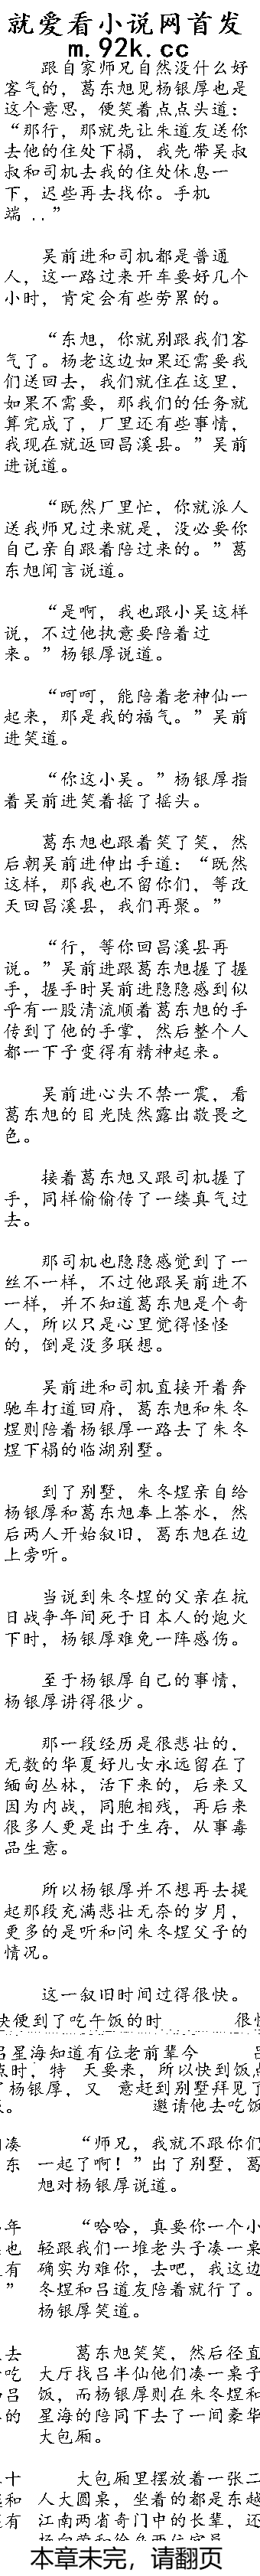 就爱看小说网首发
m.92k.cc
跟自家师兄自然没什么好
客气的，葛东旭见杨银厚也是
这个意思，便笑着点点头道：
“那行，那就先让朱道友送你
去他的住处下榻，我先带吴叔
叔和司机去我的住处休息一
下，迟些再去找你。手机
端 ..”
吴前进和司机都是普通
人，这一路过来开车要好几个
小时，肯定会有些劳累的。
“东旭，你就别跟我们客
气了。杨老这边如果还需要我
们送回去，我们就住在这里，
如果不需要，那我们的任务就
算完成了，厂里还有些事情，
我现在就返回昌溪县。”吴前
进说道。
“既然厂里忙，你就派人
送我师兄过来就是，没必要你
自己亲自跟着陪过来的。”葛
东旭闻言说道。
“是啊，我也跟小吴这样
说，不过他执意要陪着过
来。”杨银厚说道。
“呵呵，能陪着老神仙一
起来，那是我的福气。”吴前
进笑道。
“你这小吴。”杨银厚指
着吴前进笑着摇了摇头。
葛东旭也跟着笑了笑，然
后朝吴前进伸出手道：“既然
这样，那我也不留你们，等改
天回昌溪县，我们再聚。”
“行，等你回昌溪县再
说。”吴前进跟葛东旭握了握
手，握手时吴前进隐隐感到似
乎有一股清流顺着葛东旭的手
传到了他的手掌，然后整个人
都一下子变得有精神起来。
吴前进心头不禁一震，看
葛东旭的目光陡然露出敬畏之
色。
接着葛东旭又跟司机握了
手，同样偷偷传了一缕真气过
去。
那司机也隐隐感觉到了一
丝不一样，不过他跟吴前进不
一样，并不知道葛东旭是个奇
人，所以只是心里觉得怪怪
的，倒是没多联想。
吴前进和司机直接开着奔
驰车打道回府，葛东旭和朱冬
煜则陪着杨银厚一路去了朱冬
煜下榻的临湖别墅。
到了别墅，朱冬煜亲自给
杨银厚和葛东旭奉上茶水，然
后两人开始叙旧，葛东旭在边
上旁听。
当说到朱冬煜的父亲在抗
日战争年间死于日本人的炮火
下时，杨银厚难免一阵感伤。
至于杨银厚自己的事情，
杨银厚讲得很少。
那一段经历是很悲壮的，
无数的华夏好儿女永远留在了
缅甸丛林，活下来的，后来又
因为内战，同胞相残，再后来
很多人更是出于生存，从事毒
品生意。
所以杨银厚并不想再去提
起那段充满悲壮无奈的岁月，
更多的是听和问朱冬煜父子的
情况。
这一叙旧时间过得很快。
快便到了吃午饭的时 很快
吕星海知道有位老前辈今 吕
点时，特 天要来，所以快到饭点
了杨银厚，又 意赶到别墅拜见了
邀请他去吃饭
“师兄，我就不跟你们
一起了啊！”出了别墅，葛
旭对杨银厚说道。
“哈哈，真要你一个小
轻跟我们一堆老头子凑一桌
确实为难你，去吧，我这边
冬煜和吕道友陪着就行了。
杨银厚笑道。
葛东旭笑笑，然后径直
大厅找吕半仙他们凑一桌子
饭，而杨银厚则在朱冬煜和
星海的陪同下去了一间豪华
大包厢。
大包厢里摆放着一张二
人大圆桌，坐着的都是东越
江南两省奇门中的长辈，还
本章未完，请翻页